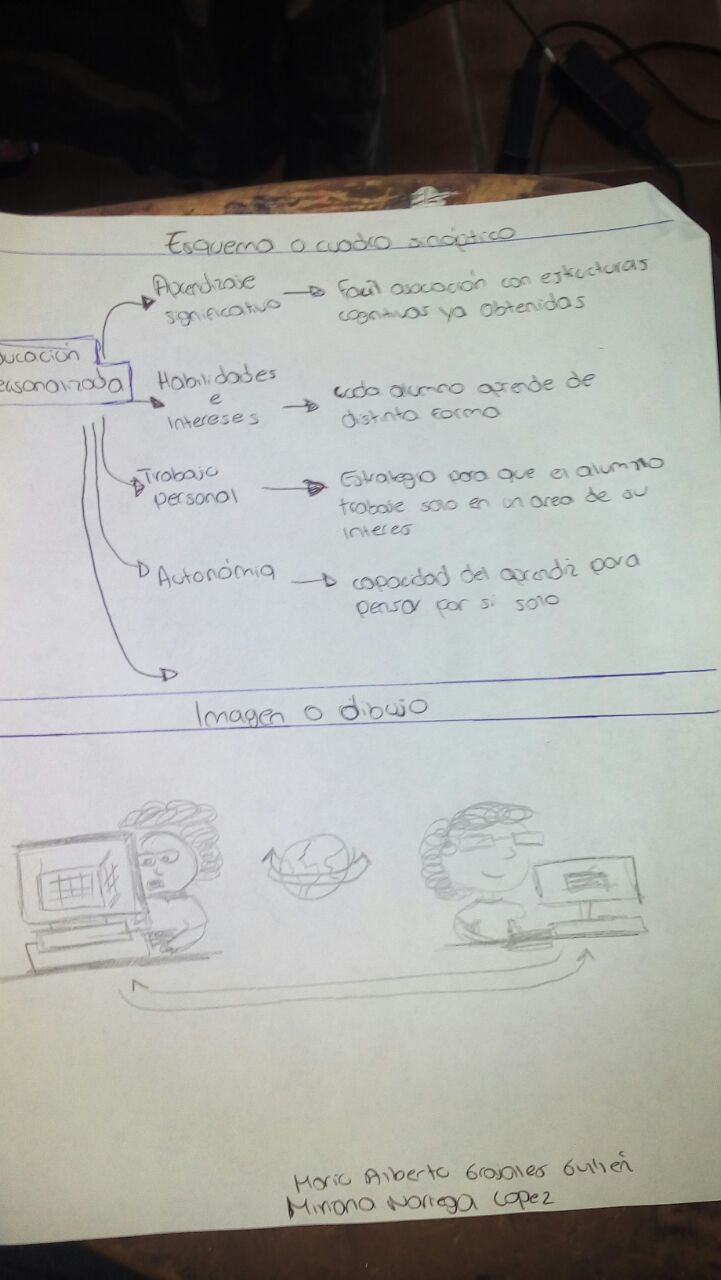 Esquema o cuadro sinóptico
Aprendizaje
significativo
Facil asociación con estructuras
cognitivas ya obtenidas
ducación
ersonalizada
Habilidades
e
intereses
cada alumno aprende de
distinta forma
Trabajo
personal
Estrategia para que el alumno
trabaje solo en un area de su
interes
Autonómia
capacidad del aprendiz para
pensar por si solo
Imagen o dibujo
Alberto Grajales
Noriega Lopez